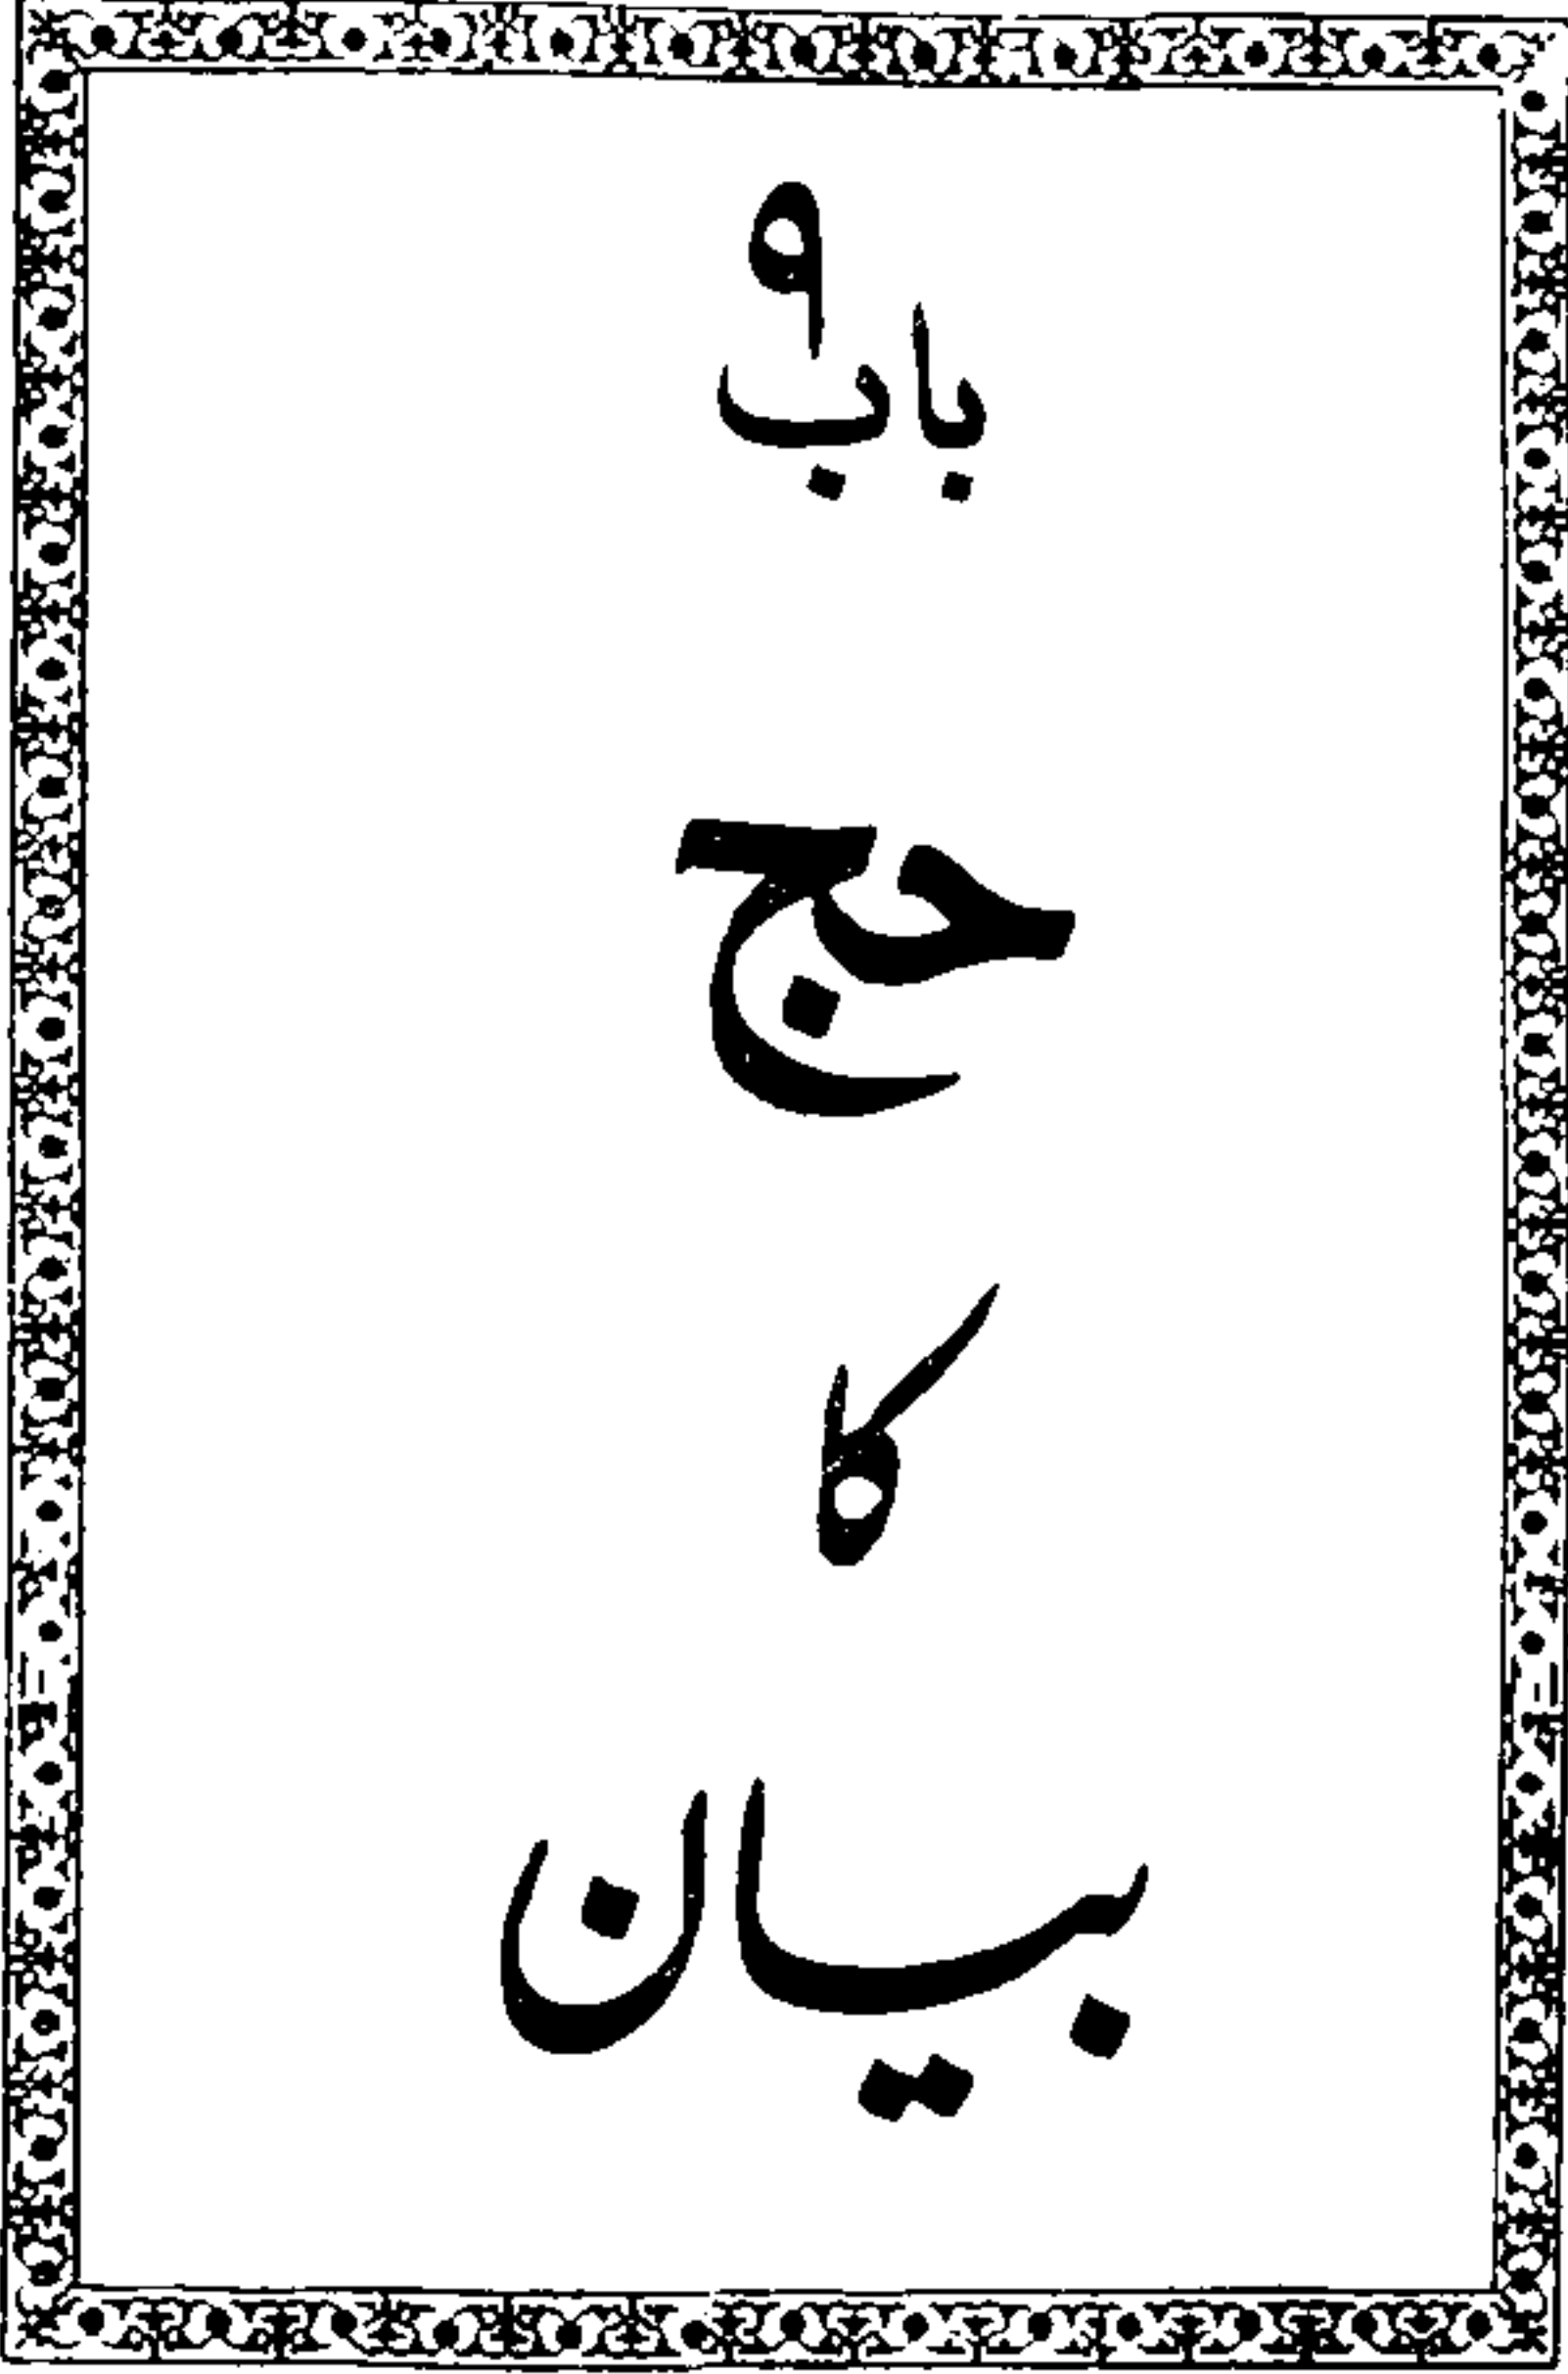 باب ۹
حج
کا
بیان